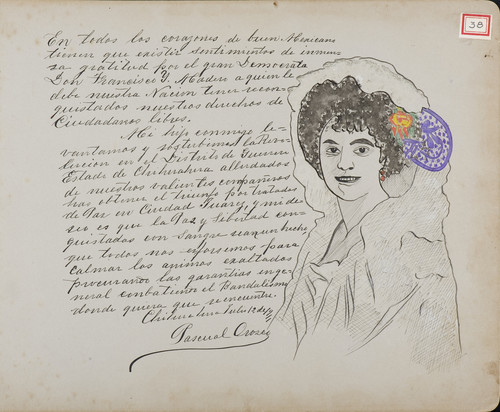 38
En todos los corazones de buen Mexicano
tienen que existir sentimientos de inmen-
sa gratitud por el gran Democrata
Don Francisco Y. Madero a quien le
debe nuestra Nacion tener recon-
quistados nuestros derechos de
Ciudadanos libres.
Mi hijo conmigo le-
vantamos y sostubimos la Revo-
lucion en el Distrito de Guerrero
Estado de Chihuahua ayudados
de nuestros valientes compañeros
hasta obtener el triunfo por tratados
de Paz en Ciudad Juarez, y mi de-
seo es que la Paz y libertad con-
quistadas con sangre sea un hecho
que todos nos esforsemos para
calmar los animos exaltados
procurando las garantias en ge-
neral combatiendo el Bandalismo
donde quiera que se encuentre.
Chihuahua Julio
Pascual Orozco